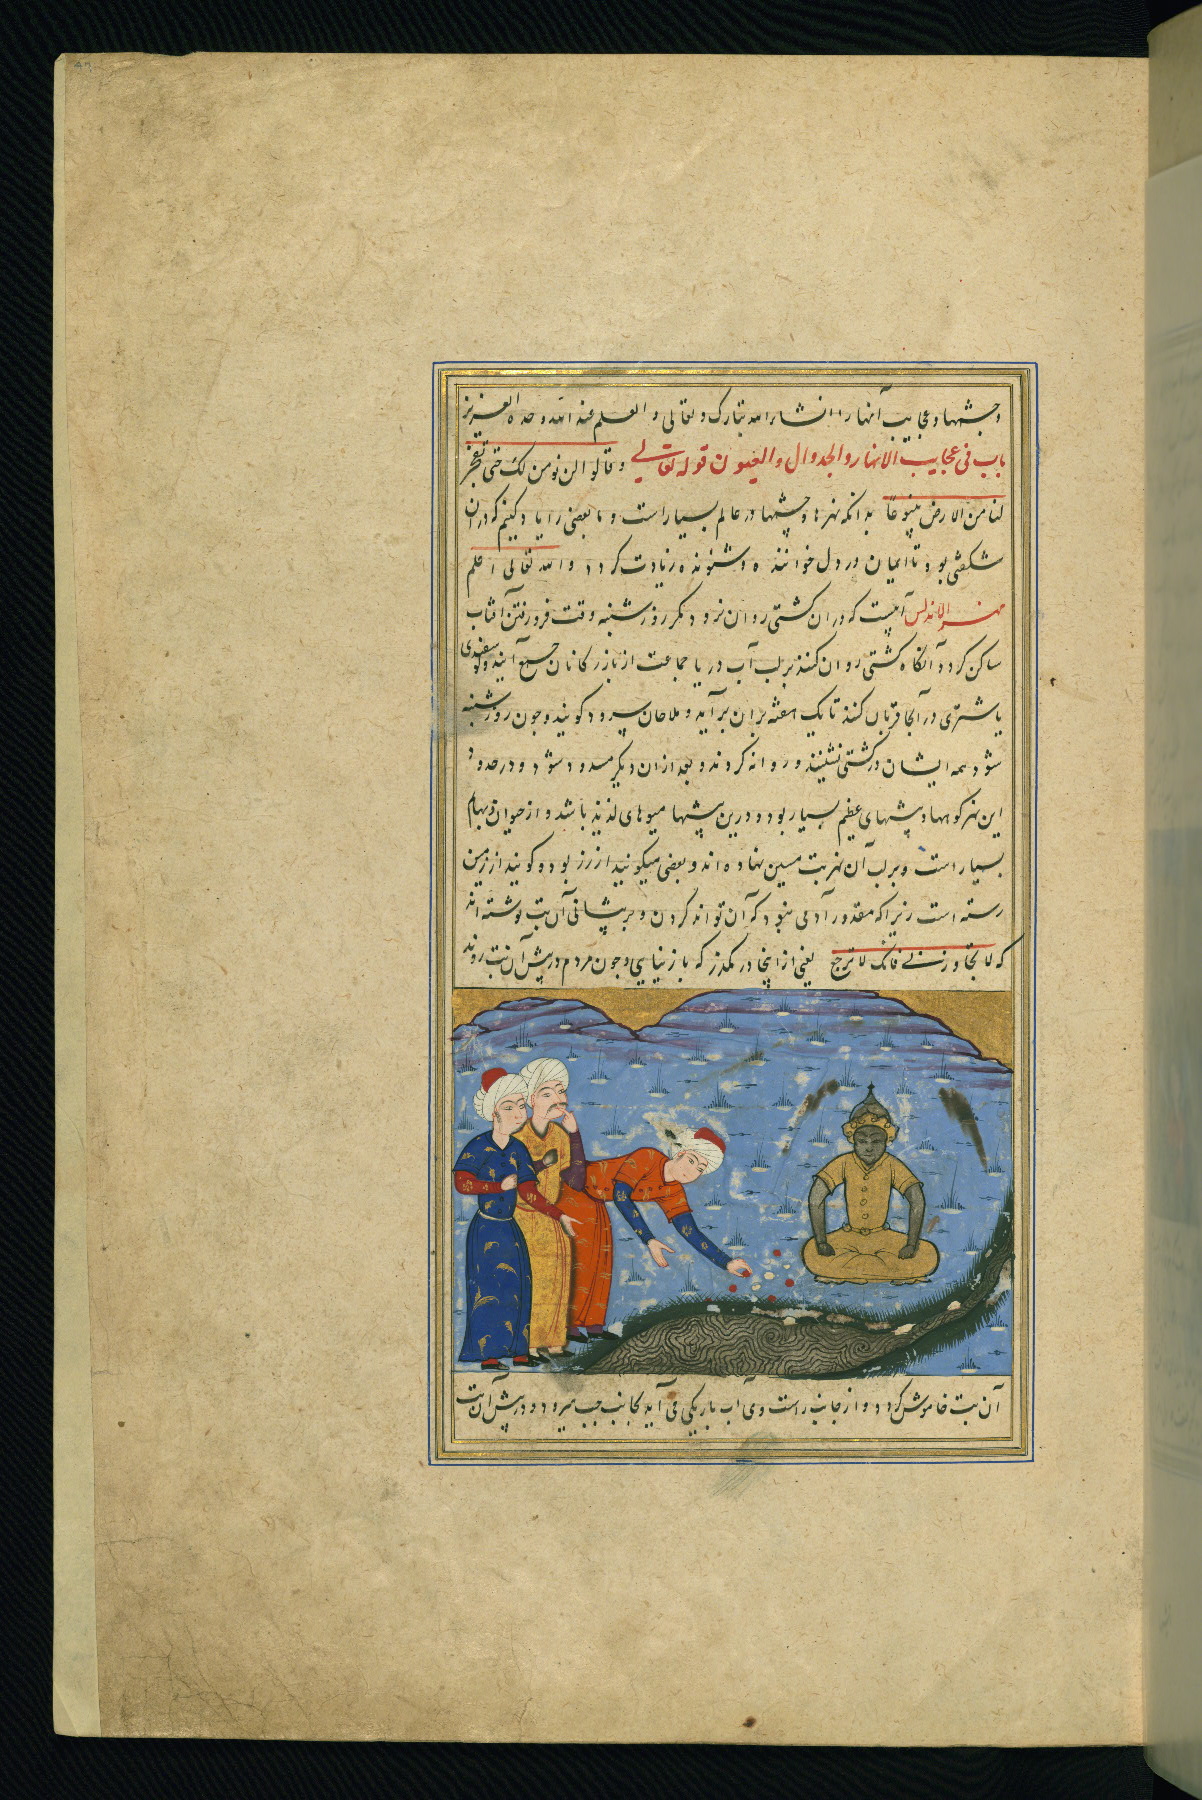 و چشمها و عجایب آنها را انشاءالله تبارک و تعالی و العلم عند الله وحده العزیز
باب فی عجایب الانهار و الجداول و العیون قوله تعالی و قالوا لن نومن لک حتی تفجر
لنا من الارض ینبوعا بدانکه نهرها و چشمها در عالم بسیار است و ما بعضی را یاد کنیم که در آن
شکفتی بود تا ایمان در دل خواننده و شنونده زیادت کردد و الله تعالی اعلم
نهر الاندلس آبیست که در ان کشتی روان نرود مکر روز شنبه وقت فرو رفتن آفتاب
ساکن کردد آنکاه کشتی روان کنند بر لب آب دریا جماعت از بازرکانان جمع آیند و کوسفندی
یا شتری در آنجا قربان کنند تا یک هفته بران برآید و ملاحان سرود کویند و چون روز شنبه
شود همه ایشان در کشتی نشینند و روانه کردند و بعد از ان دیکر مسدود شود و در حدود
این نهر کوهها و بیشهای عظیم بسیار بود و درین بیشها میوهای لذیذ باشد و از حیوان و بهایم
بسیار است و بر لب آن نهر بت مسین نهاده اند و بعضی میکویند از زر بود و کویند از زمین
رسته است زیرا که مقدور آدمی نبود که آن تواند کردن و بر پیشانی آن بت نوشته اند
که لا تجاوز فانک لا ترجع یعنی از اینجا در مکذر که باز نیایی و چون مردم در پیش آن بت روند
آن بت خاموش کردد و از جانب راست وی آب باریکی می آید بجانب چپ میرود و در پیش آن بت